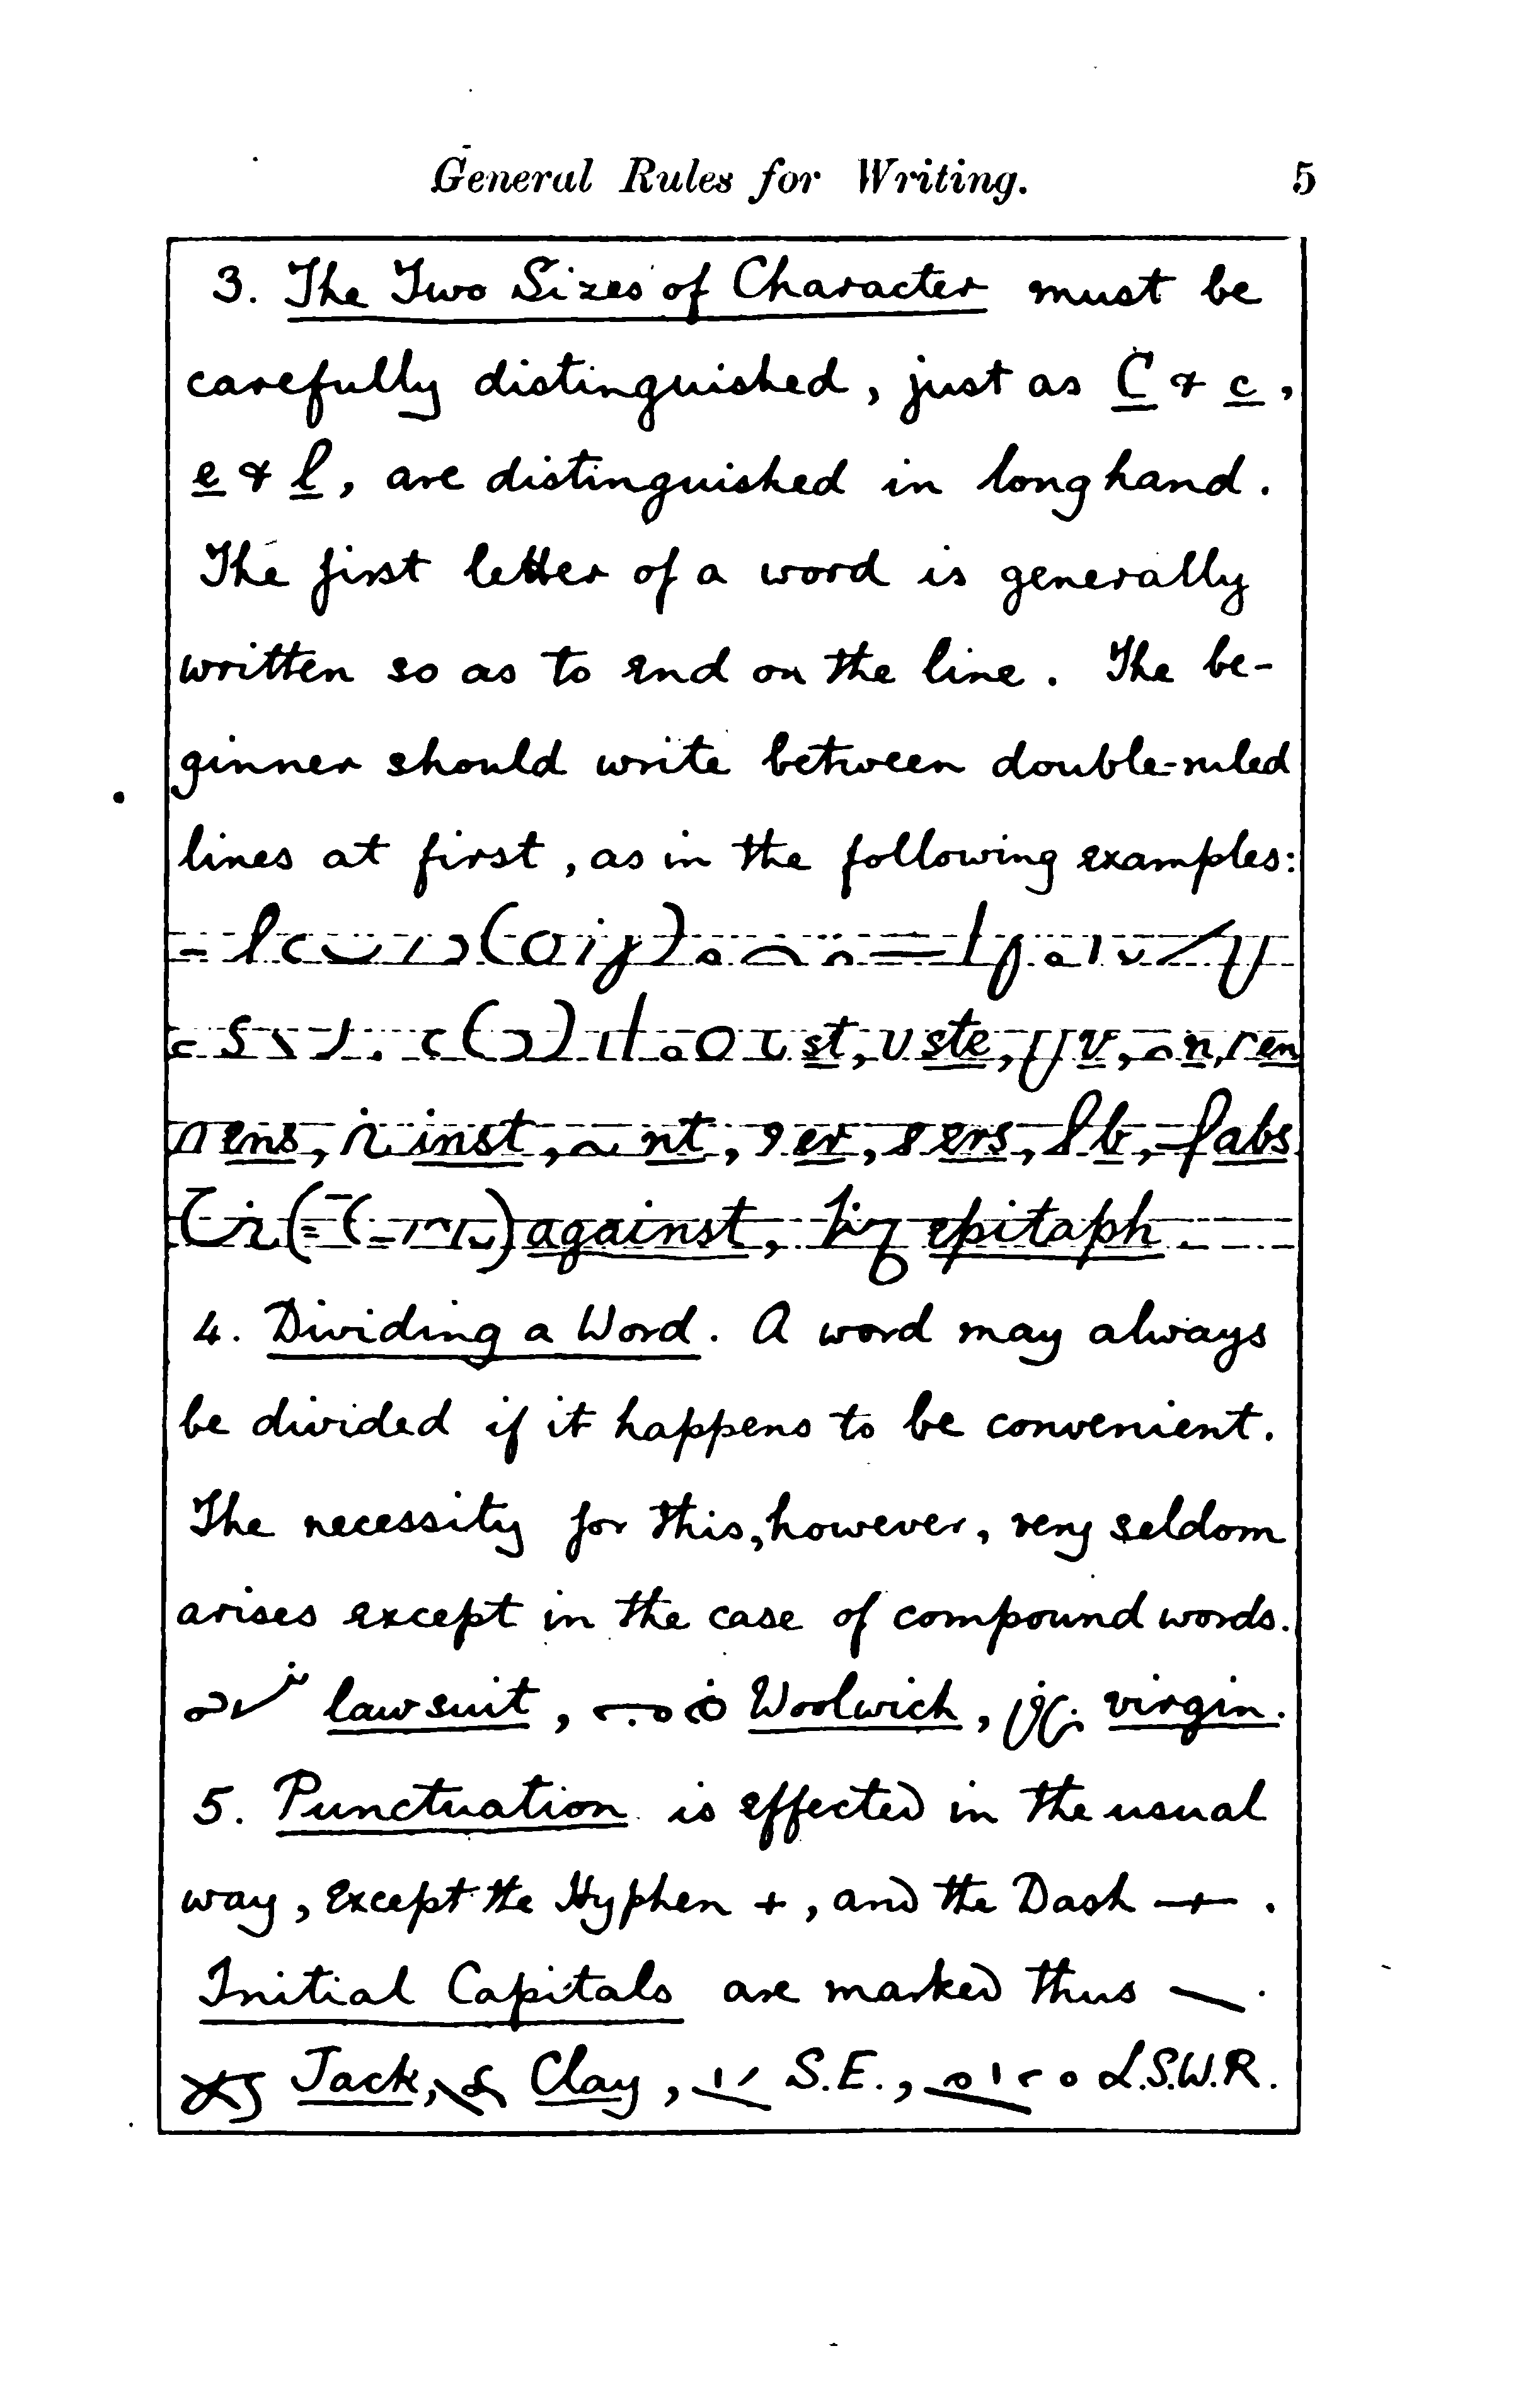 General Rules for Writing. 5
3. The Two Sizes of Character must be
carefully distinguished, just as C & c,
e & l, are distinguished in longhand.
The first letter of a word is generally
written so as to end on the line. The be-
ginner should write between double-ruled
lines at first, as in the following examples:
st, ste, v, n, en
ens, inst, nt, er, ers, b, abs
against, epitaph.
4. Dividing a Word. A word may always
be divided if it happens to be convenient.
The necessity for this, however, very seldom
arises except in the case of compound words.
lawsuit, Woolwich, virgin.
5. Punctuation is effected in the usual
way, except the Hyphen +, and the Dash —+—.
Initial Capitals are marked thus \.
Jack, Clay, S.E., L.S.W.R.